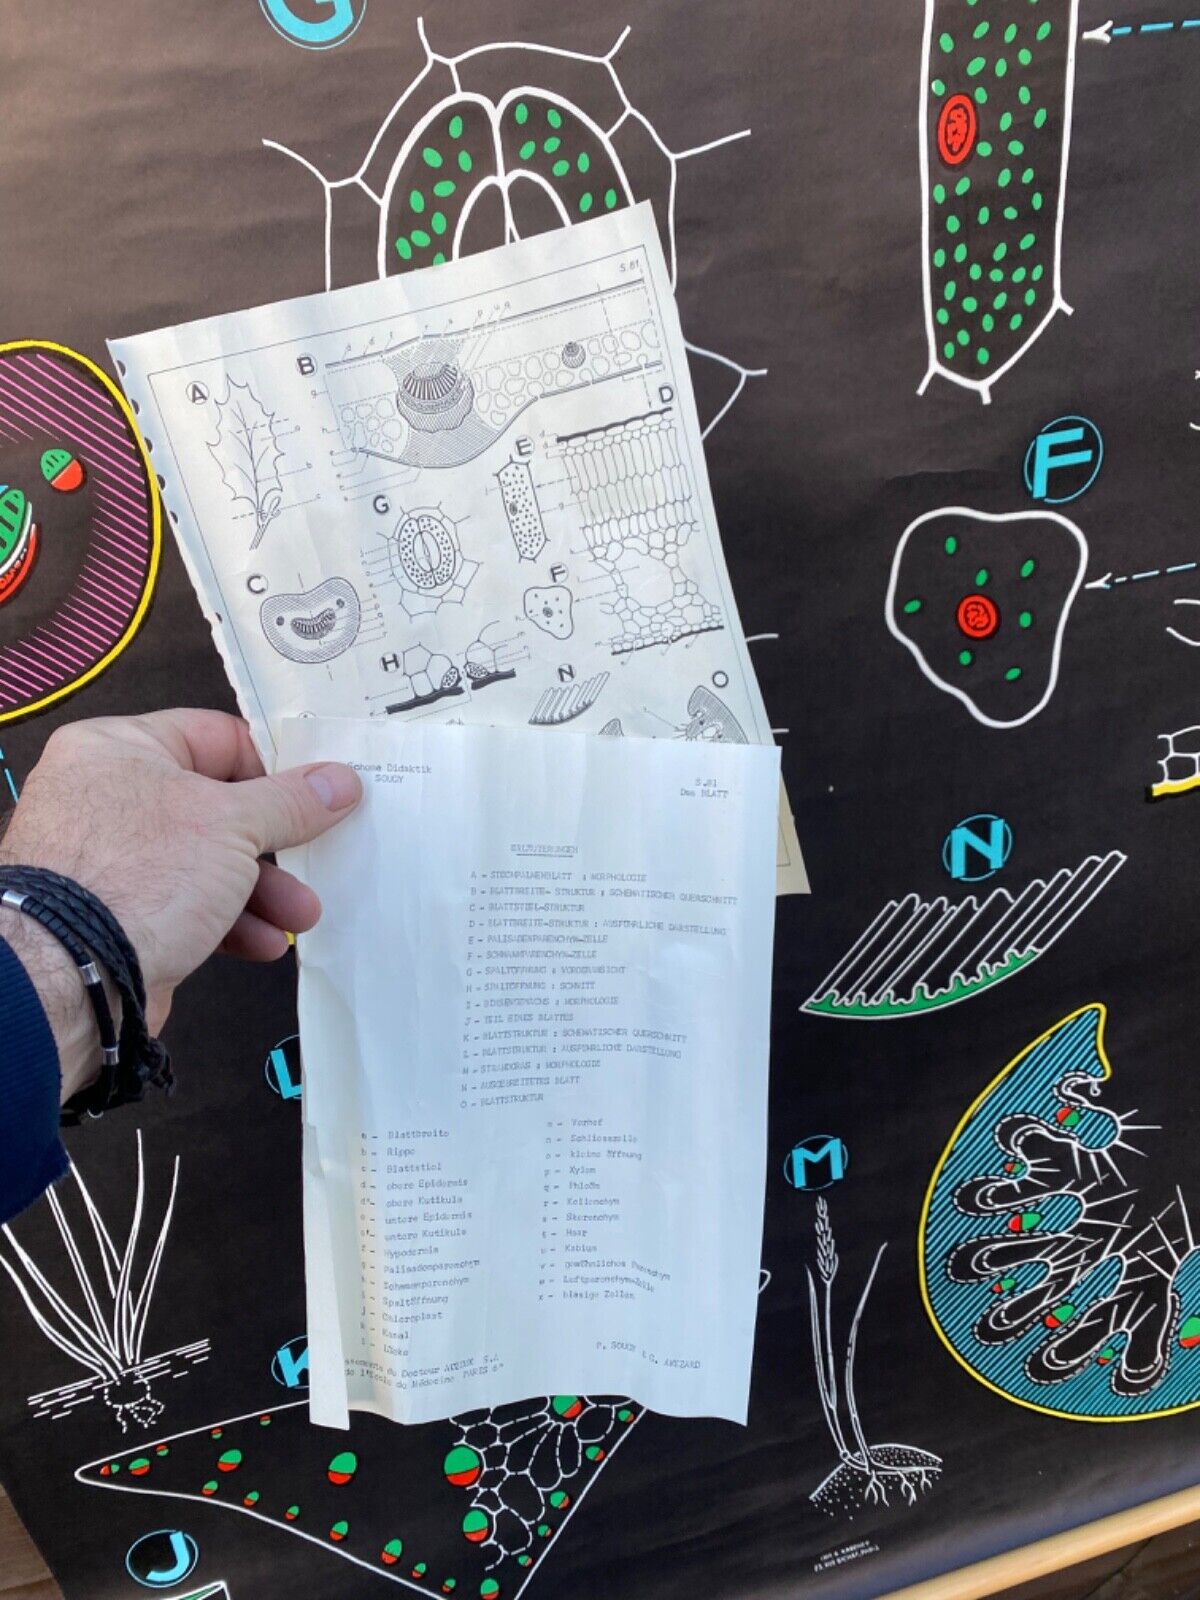 G
F
N
L
M
K
J
S.81
A
B
D
E
G
C
F
H
N
O
Didaktik
SOUGY
S.81
Das BLATT
ERLÄUTERUNGEN
A - STECHPALMENBLATT : MORPHOLOGIE
B - BLATTBREITE- STRUKTUR : SCHEMATISCHER QUERSCHNITT
C - BLATTSTIEL-STRUKTUR
D - BLATTBREITE-STRUKTUR : AUSFÜHRLICHE DARSTELLUNG
E - PALISADENPARENCHYM-ZELLE
F - SCHWAMMPARENCHYM-ZELLE
G - SPALTÖFFNUNG : VORDERANSICHT
H - SPALTÖFFNUNG : SCHNITT
I - BINSENGEWÄCHS : MORPHOLOGIE
J - TEIL EINES BLATTES
K - BLATTSTRUKTUR : SCHEMATISCHER QUERSCHNITT
L - BLATTSTRUKTUR : AUSFÜHRLICHE DARSTELLUNG
M - STRANDGRAS : MORPHOLOGIE
N - AUSGEBREITETES BLATT
O - BLATTSTRUKTUR
a - Blattbreite
b - Rippe
c - Blattstiel
d - obere Epidermis
d' - obere Kutikula
e - untere Epidermis
e' - untere Kutikula
f - Hypodermis
g - Palisadenparenchym
h - Schwammparenchym
i - Spaltöffnung
j - Chloroplast
k - Kanal
l - Lücke
m - Vorhof
n - Schliesszelle
o - kleine Öffnung
p - Xylem
q - Phloëm
r - Kollenchym
s - Skerenchym
t - Haar
u - Kabium
v - gewöhnliches Parenchym
w - Luftparenchym-Zelle
x - blasige Zellen
P. SOUGY & G. ANEZARD
du Docteur AUZOUX S.A
de l'Ecole de Médecine PARIS 6°